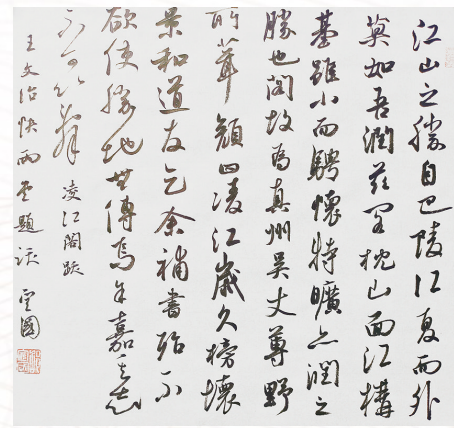 江山之勝自巴陵江夏而外
莫如吾潤茲閣枕山面江構
基雖小而騁懷特曠亦潤之
勝也閣故為真州吳丈尊野
所葺顏曰凌江歲久榜壞
景和道友乞余補書殆不
欲使勝地無傳焉余嘉其志
不可以辭
凌江閣跋
王文治快雨堂題跋